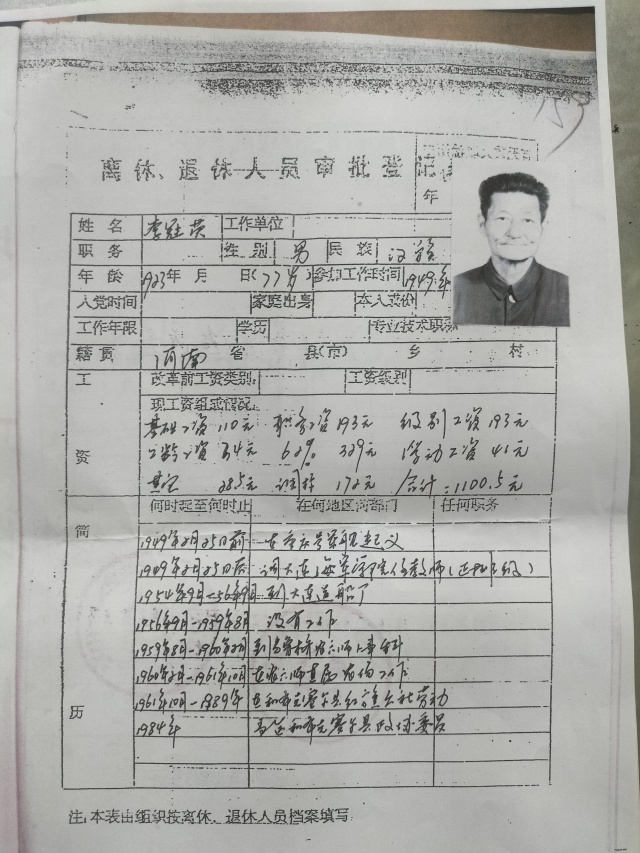 159
离休、退休人员审批登记
年
姓名 李冠英 工作单位
职务 性别 男 民族 汉族
年龄 1923年 月 日(77岁) 参加工作时间 1949年
入党时间 家庭出身 本人成份
工作年限 学历 专业技术职
籍贯 河南 省 县(市) 乡 村
工资 改革前工资类别: 工资级别
现工资组成情况:
基础工资 110元 职务工资 193元 级别工资 193元
工龄工资 34元 62% 339元 劳动工资 41元
其它 元 172元 合计:1100.5元
简历 何时起至何时止 在何地区何部门 任何职务
1949年2月25日前 在重庆号军舰起义
1949年2月25日后 调大连海军学院任教师(正排级)
1954年9月-56年9月 到大连造船厂
1956年9月-1959年8月 没有工作
1959年8月-1960年2月 到乌鲁木齐农六师
1960年2月-1961年10月 在农六师 工作
1961年10月-1989年 在和布克赛尔县 公社劳动
1984年 和布克赛尔县政协委员
注:本表由组织按离休、退休人员档案填写